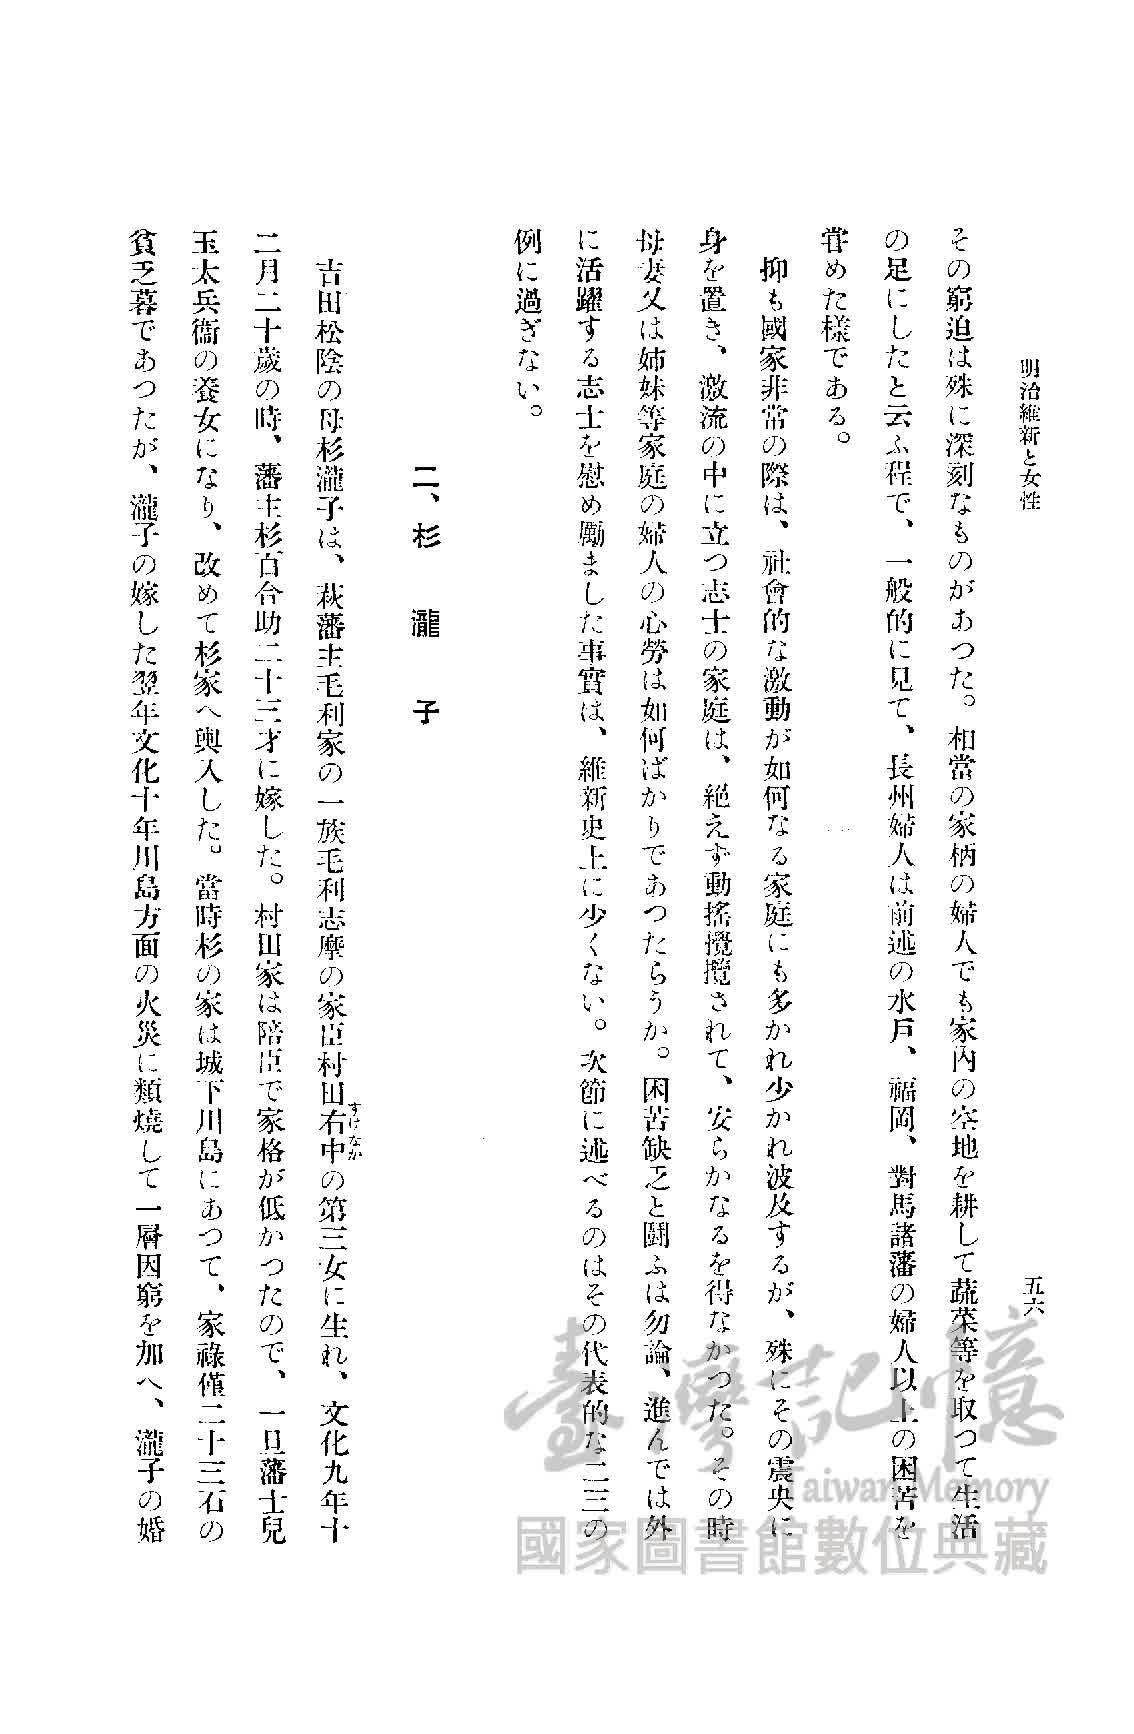 明治維新と女性
五六
その窮迫は殊に深刻なものがあつた。相當の家柄の婦人でも家內の空地を耕して蔬菜等を取つて生活
の足にしたと云ふ程で、一般的に見て、長州婦人は前述の水戶、福岡、對馬諸藩の婦人以上の困苦を
甞めた樣である。
抑も國家非常の際は、社會的な激動が如何なる家庭にも多かれ少かれ波及するが、殊にその震央に
身を置き、激流の中に立つ志士の家庭は、絕えず動搖攪攬されて、安らかなるを得なかつた。その時
母妻又は姉妹等家庭の婦人の心勞は如何ばかりであつたらうか。困苦缺乏と鬪ふは勿論、進んでは外
に活躍する志士を慰め勵ました事實は、維新史上に少くない。次節に述べるのはその代表的な二三の
例に過ぎない。
二、杉瀧子
吉田松陰の母杉瀧子は、萩藩主毛利家の一族毛利志摩の家臣村田右中の第三女に生れ、文化九年十
すけなか
二月二十歲の時、藩主杉百合助二十三才に嫁した。村田家は陪臣で家格が低かつたので、一旦藩士兒
玉太兵衞の養女になり、改めて杉家へ輿入した。當時杉の家は城下川島にあつて、家祿僅二十三石の
貧乏暮であつたが、瀧子の嫁した翌年文化十年川島方面の火災に類燒して一層因窮を加へ、瀧子の婚
臺灣記憶
Taiwan Memory
國家圖書館數位典藏